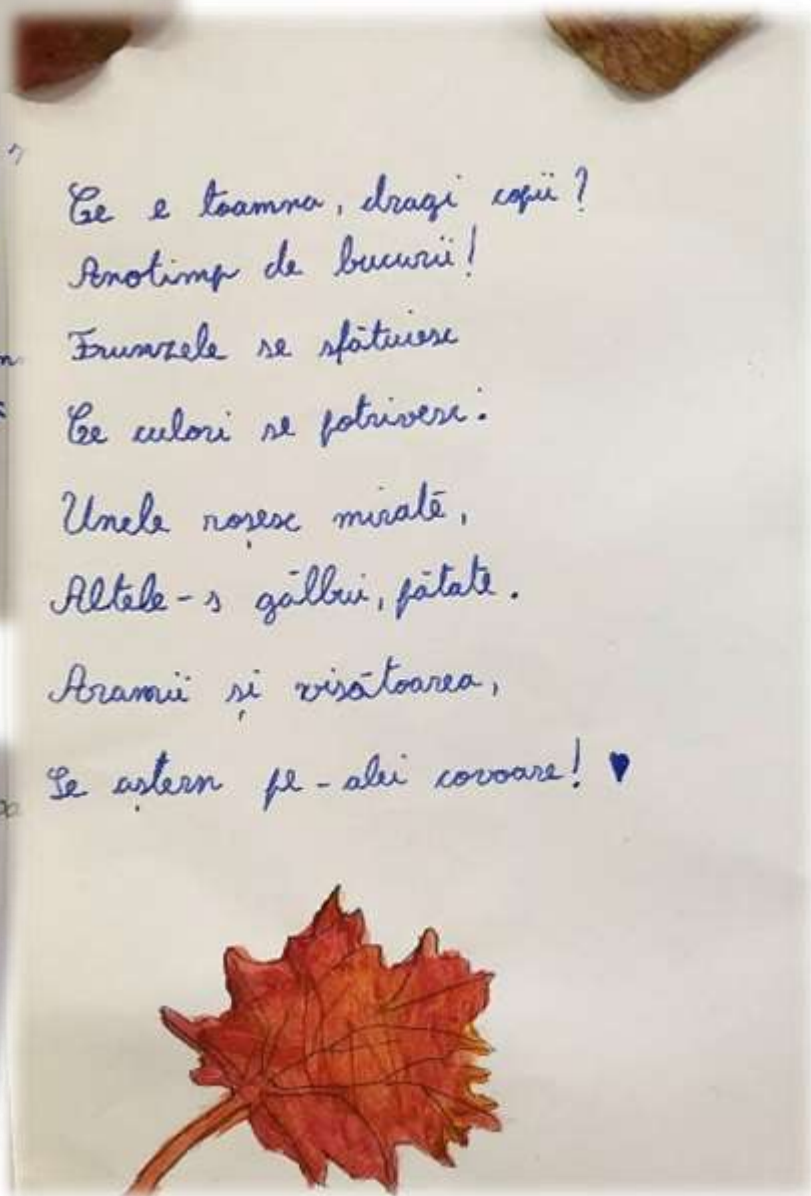 Ce e toamna, dragi copii?
Anotimp de bucurii!
Frunzele se sfătuiesc
Ce culori se potrivesc:
Unele roșesc mirate,
Altele-s gălbui, pătate.
Aramii și visătoarea,
Se aștern pe-alei covoare!